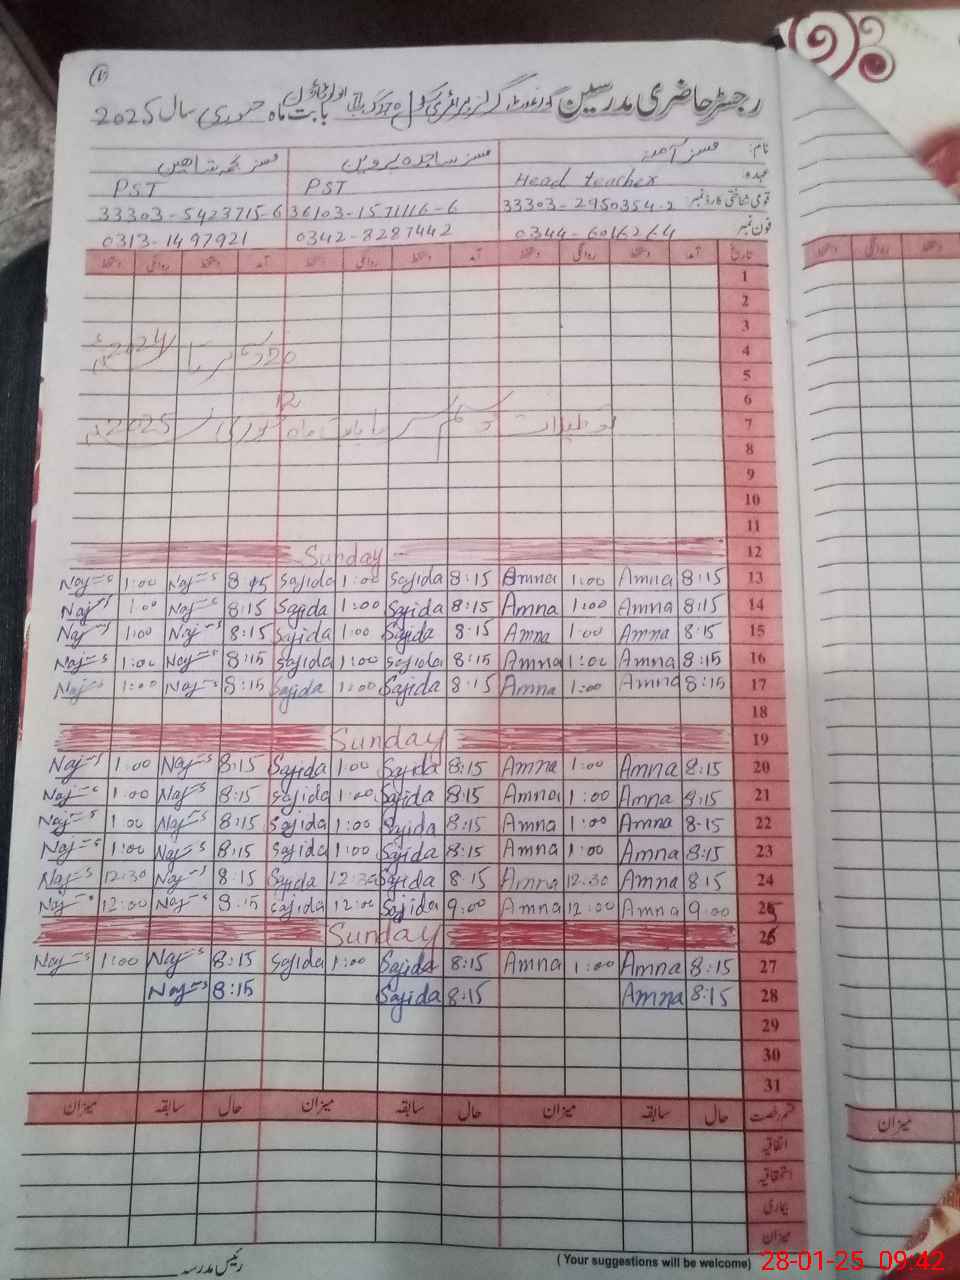 رجسٹر حاضری مدرسین گورنمنٹ گرلز پرائمری سکول بابت ماہ جنوری سال 2025
نام: مسز آمنہ مسز ساجدہ پروین مسز نجمہ شاہین
عہدہ: Head teacher PST PST
قومی شناختی کارڈ نمبر: 33303-2950354-2 36103-1571116-6 33303-5423715-6
فون نمبر 0344-6016264 0342-8287442 0313-1497921
تاریخ آمد دستخط روانگی دستخط آمد دستخط روانگی دستخط آمد دستخط روانگی دستخط
1
2
3
4 2024
5
6
7 تعطیلات موسم سرما جنوری 2025
8
9
10
11
12 Sunday
13 8:15 Amna 1:00 Amna 8:15 Sajida 1:00 Sajida 8:15 1:00
14 8:15 Amna 1:00 Amna 8:15 Sajida 1:00 Sajida 8:15 1:00
15 8:15 Amna 1:00 Amna 8:15 Sajida 1:00 Sajida 8:15 1:00
16 8:15 Amna 1:00 Amna 8:15 Sajida 1:00 Sajida 8:15 1:00
17 8:15 Amna 1:00 Amna 8:15 Sajida 1:00 Sajida 8:15 1:00
18
19 Sunday
20 8:15 Amna 1:00 Amna 8:15 Sajida 1:00 Sajida 8:15 1:00
21 8:15 Amna 1:00 Amna 8:15 Sajida 1:00 Sajida 8:15 1:00
22 8:15 Amna 1:00 Amna 8:15 Sajida 1:00 Sajida 8:15 1:00
23 8:15 Amna 1:00 Amna 8:15 Sajida 1:00 Sajida 8:15 1:00
24 8:15 Amna 12:30 Amna 8:15 Sajida 12:30 Sajida 8:15 12:30
25 9:00 Amna 12:00 Amna 9:00 Sajida 12:00 Sajida 12:00
26 Sunday
27 8:15 Amna 1:00 Amna 8:15 Sajida 1:00 Sajida 8:15 1:00
28 8:15 Amna 8:15 Sajida 8:15
29
30
31
قسم رخصت حال سابقہ میزان حال سابقہ میزان حال سابقہ میزان
اتفاقیہ
استحقاقیہ
بیماری
میزان
رئیس مدرسہ
( Your suggestions will be welcome)
28-01-25 09:42
دستخط روانگی دستخط
میزان